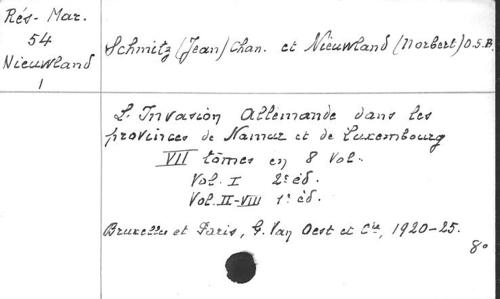 Rés- Mar.
54
Nieuwland
1
Schmitz (Jean) Chan. et Nieuwland (Norbert) O.S.B.
L'Invasion Allemande dans les
provinces de Namur et de Luxembourg
VII tômes en 8 Vol.
Vol. I 2e éd.
Vol. II-VIII 1e éd.
Bruxelles et Paris, G. Van Oest et Cie, 1920-25.
8o